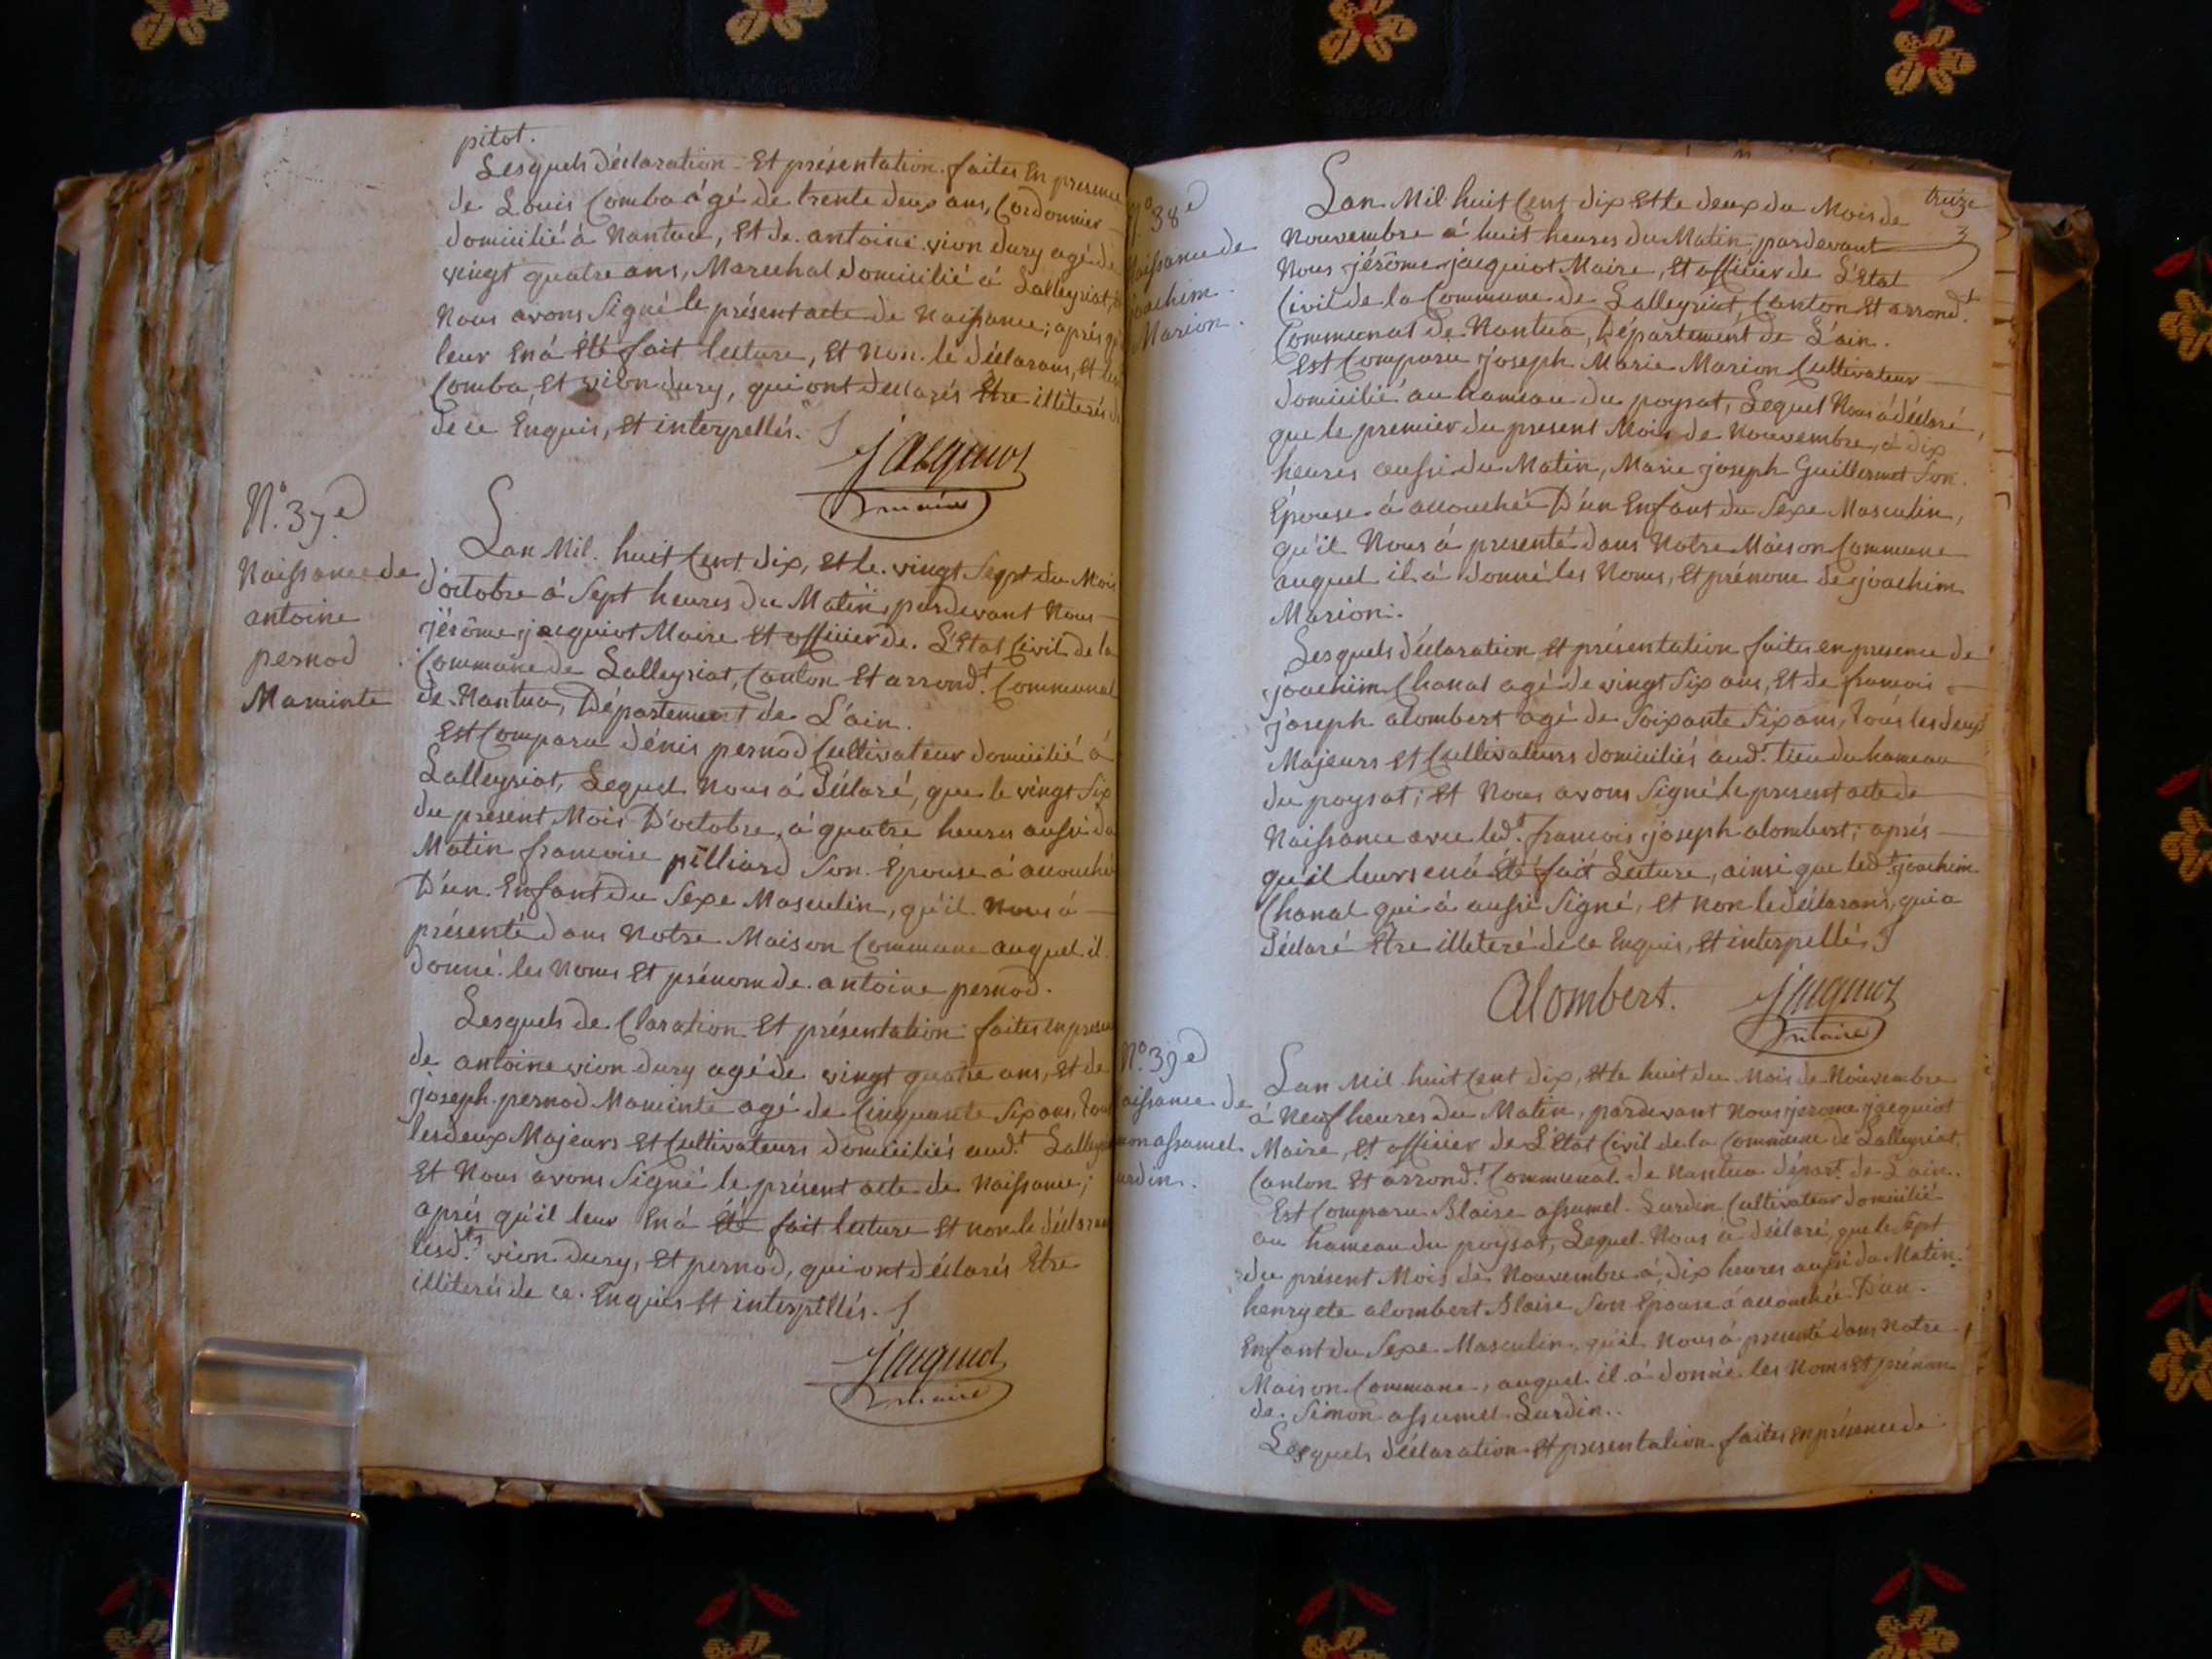 pitot.
Lesquels déclaration Et présentation faites En presence
de Louis Comba ágé de trente deux ans, Cordonnier
domicilié à Nantua, Et de antoine vion dury agé de
vingt quatre ans, Marechal domicilié à Lalleyriat,
Nous avons Signé le présent acte de Naissance; aprés
leur En á Eté fait lecture, Et Non le déclarans, Et
Comba, Et vion dury, qui ont declarés Etre illiterés
de ce Enquis, Et interpellés.
jacquiot
maire
N.º 37e
Naissance de
antoine
pernod
Maminte
Lan Mil huit Cent dix, Et le vingt Sept du Mois
d'octobre á Sept heures du Matin, pardevant Nous
jérôme jacquiot Maire Et officier de L'Etat Civil de la
Commune de Lalleyriat, Canton Et arrond.t Communal
de Nantua, Département de L'ain.
Est Comparu dénis pernod Cultivateur domicilié á
Lalleyriat, Lequel Nous á Déclaré, que le vingt Six
du présent Mois D'octobre, á quatre heures aussi du
Matin francoise pilliard Son Épouse á accouché
D'un Enfant du Sexe Masculin, qu'il Nous á
présenté dans Notre Maison Commune auquel il
donné les Noms Et prénom de antoine pernod.
Lesquels de Claration Et présentation faites en
de antoine vion dury agé de vingt quatre ans, Et de
joseph pernod Maminte agé de Cinquante Six ans, tous
les deux Majeurs Et Cultivateurs domiciliés aud.t
Et Nous avons Signé le présent acte de Naissance;
aprés qu'il leur En á Eté fait lecture Et non le
lesd.ts vion dury, Et pernod, qui ont déclarés Etre
illiterés de ce Enquis Et interpellés.
jacquiot
maire
treize
Nº 38e
Naissance de
joachim
Marion.
Lan Mil huit Cent dix Et le deux du Mois de
Nouvembre á huit heures du Matin, pardevant
Nous jérôme jacquiot Maire, Et officier de L'Etat
Civil de la Commune de Lalleyriat, Canton Et arrond.t
Communal de Nantua, Département de L'ain.
Est Comparu joseph Marie Marion Cultivateur
domicilié au hameau du poysat, Lequel Nous á déclaré,
que le premier du present Mois de Nouvembre, á dix
heures aussi du Matin, Marie joseph Guillermet Son
Épouse á accouchée D'un Enfant du Sexe Masculin,
qu'il Nous á presenté dans Notre Maison Commune
auquel il á donné les Noms, Et prénom de joachim
Marion.
Lesquels déclaration Et présentation faites en presence de
joachim Chanal agé de vingt Six ans, Et de francois
joseph alombert agé de Soixante Six ans, tous les deux
Majeurs Et Cultivateurs domiciliés aud.t lieu du hameau
du poysat; Et Nous avons Signé le present acte de
Naissance avec led.t francois joseph alombert; aprés
qu'il leurs en á Eté fait Lecture, ainsi que led.t joachim
Chanal qui á aussi Signé, Et Non le déclarans, qui a
Déclaré Etre illeteré de ce Enquis, Et interpellé,
Alombert. jacquiot
maire
Nº 39e
de
assumel
Lan Mil huit Cent dix, Et le huit du Mois de Nouvembre
á Neuf heures du Matin, pardevant Nous jerome jacquiot
Maire, Et officier de L'Etat Civil de la Commune de Lalleyriat,
Canton Et arrond.t Communal de Nantua départ.t de L'ain.
Est Comparu Blaise assumel Surdin Cultivateur domicilié
au hameau du poysat, Lequel Nous á déclaré, que le Sept
du présent Mois de Nouvembre á dix heures aussi du Matin
henryete alombert Blaise Son Epouse á accouchée D'un
Enfant du Sexe Masculin, qu'il Nous á presenté dans Notre
Maison Commune, auquel il á donné les Noms Et prénom
de Simon assumel Surdin.
Lesquels déclaration Et presentation faites en présence de